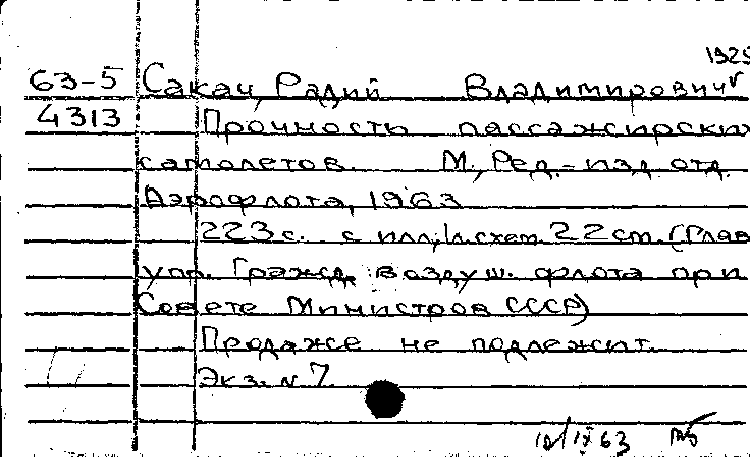 1925
63-5 Сакач, Радий Владимирович
4313 Прочность пассажирских
самолетов. М., Ред.-изд. отд.
Аэрофлота, 1963
223 с. с илл.; 1 л. схем. 22 см. (Глав.
упр. Гражд. воздуш. флота при
Совете Министров СССР)
Продаже не подлежит.
Экз. № 7
10/IX 63